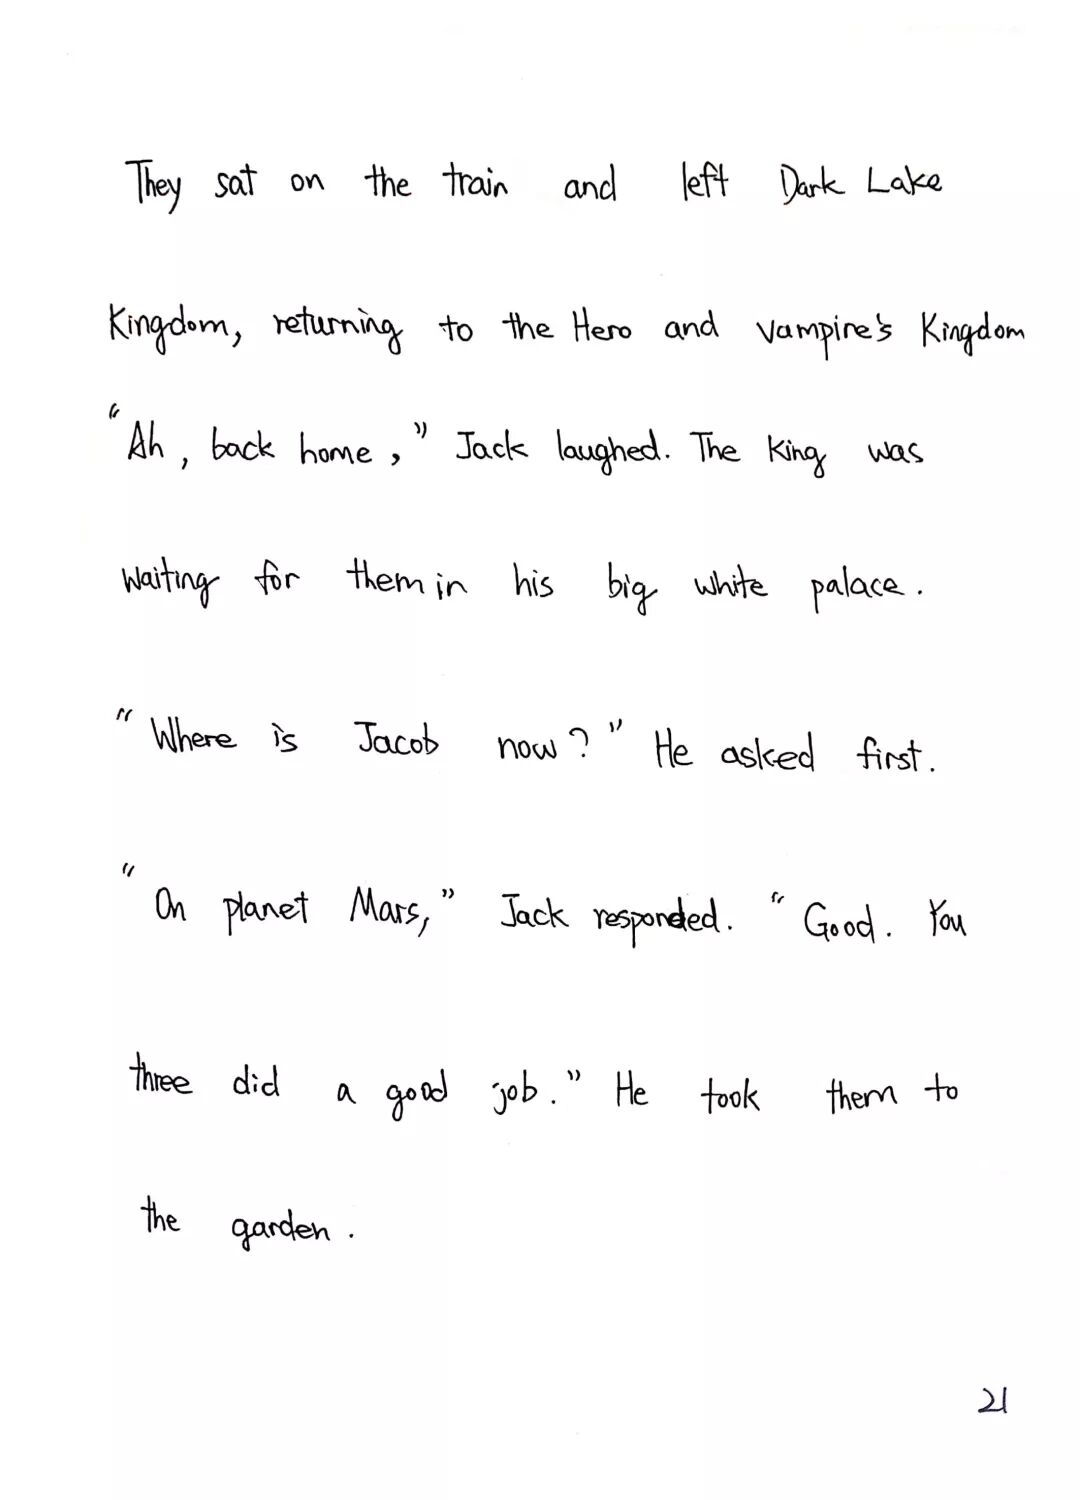 They sat on the train and left Dark Lake
Kingdom, returning to the Hero and vampire's Kingdom
"Ah, back home," Jack laughed. The King was
waiting for them in his big white palace.
"Where is Jacob now?" He asked first.
"On planet Mars," Jack responded. "Good. You
three did a good job." He took them to
the garden.
21